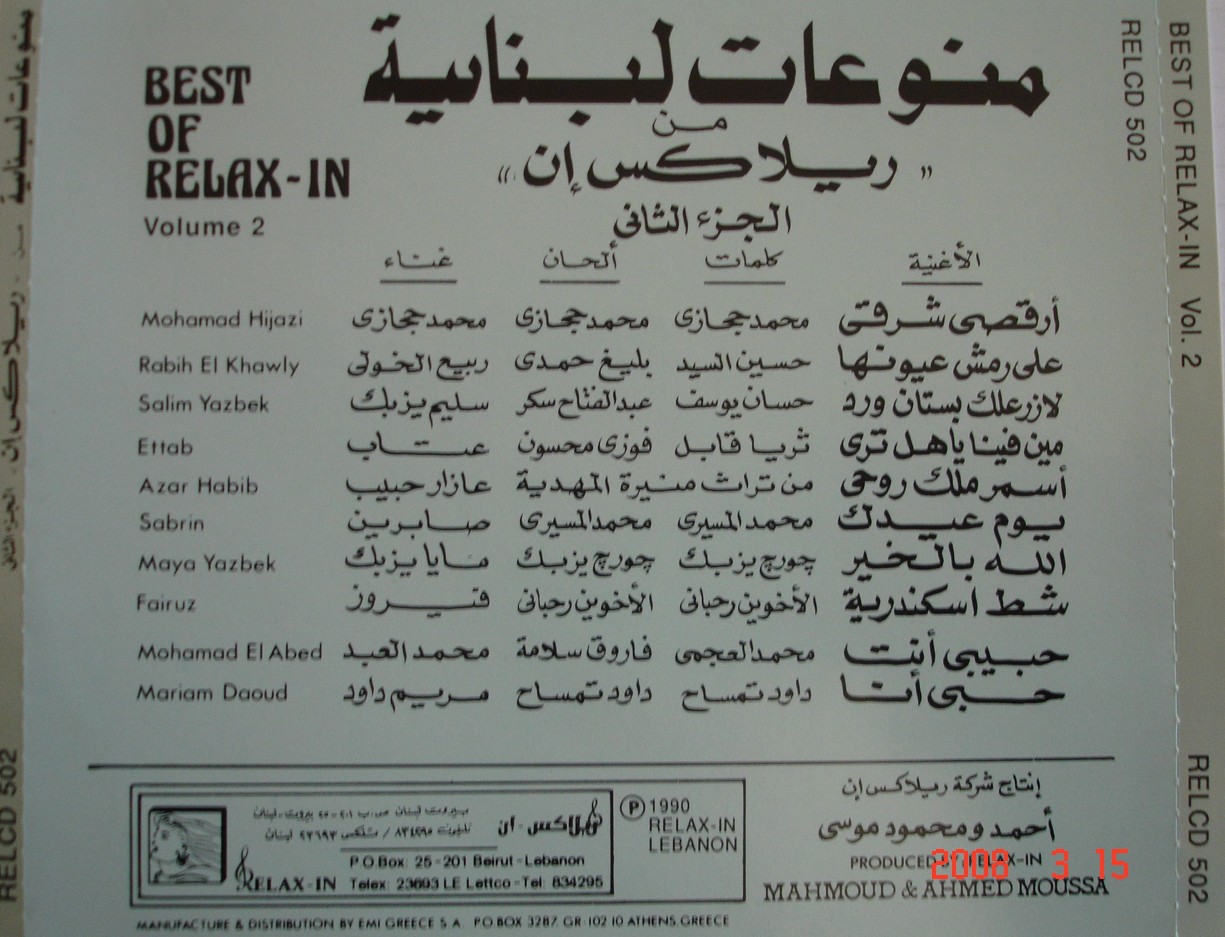 منوعات لبنانية
BEST
OF
RELAX-IN
Volume 2
من
« ريلاكس إن »
الجزء الثانى
الأغنية كلمات ألحان غناء
أرقصى شرقى محمد حجازى محمد حجازى محمد حجازى Mohamad Hijazi
على رمش عيونها حسين السيد بليغ حمدى ربيع الخولى Rabih El Khawly
لازرعلك بستان ورد حسان يوسف عبد الفتاح سكر سليم يزبك Salim Yazbek
مين فينا يا هل ترى ثريا قابل فوزى محسون عتاب Ettab
أسمر ملك روحى من تراث منيرة المهدية عازار حبيب Azar Habib
يوم عيدك محمد المسيرى محمد المسيرى صابرين Sabrin
الله بالخير چورچ يزبك چورچ يزبك مايا يزبك Maya Yazbek
شط اسكندرية الأخوين رحبانى الأخوين رحبانى فيروز Fairuz
حبيبى أنت محمد العجمى فاروق سلامة محمد العبد Mohamad El Abed
حبى أنا داود تمساح داود تمساح مريم داود Mariam Daoud
إنتاج شركة ريلاكس إن
أحمد ومحمود موسى
PRODUCED BY RELAX-IN
MAHMOUD & AHMED MOUSSA
Ⓟ 1990
RELAX-IN
LEBANON
ريلاكس - ان
RELAX-IN
P.O.Box: 25-201 Beirut-Lebanon
Telex: 23693 LE Lettco-Tel: 834295
MANUFACTURE & DISTRIBUTION BY EMI GREECE S.A. P.O.BOX 3287, GR-102 10 ATHENS, GREECE
BEST OF RELAX-IN Vol. 2
RELCD 502
RELCD 502
منوعات لبنانية من ريلاكس إن الجزء الثانى
RELCD 502
2008 3 15